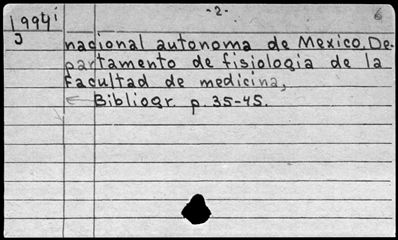 -2-
6
1994i
J
nacional autonoma de Mexico. De-
partamento de fisiologia de la
Facultad de medicina,
Bibliogr. p. 35-45.